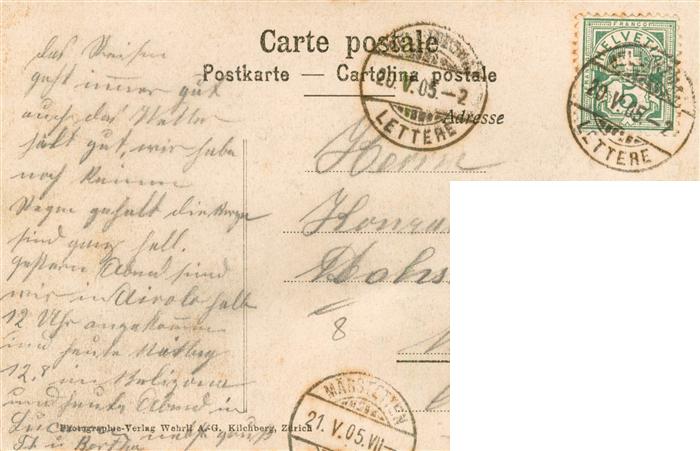 Carte postale
Postkarte — Cartolina postale
Adresse
FRANCO
HELVETIA
5
20.V.05.–2
LETTERE
20.V.05.–2
LETTERE
das Reisen
geht immer gut
auch das Wetter
halt gut, wir habe
noch keinen
Regen gehabt die Berge
sind ganz hell.
gestern Abend sind
wir in Airolo halb
12 Uhr angekommen
und heute Mittag
12.8 in
und heute Abend in
Herrn
8
MÄRSTETTEN
21.V.05.VII–
Photographie-Verlag Wehrli A.-G. Kilchberg, Zürich
u Bertha